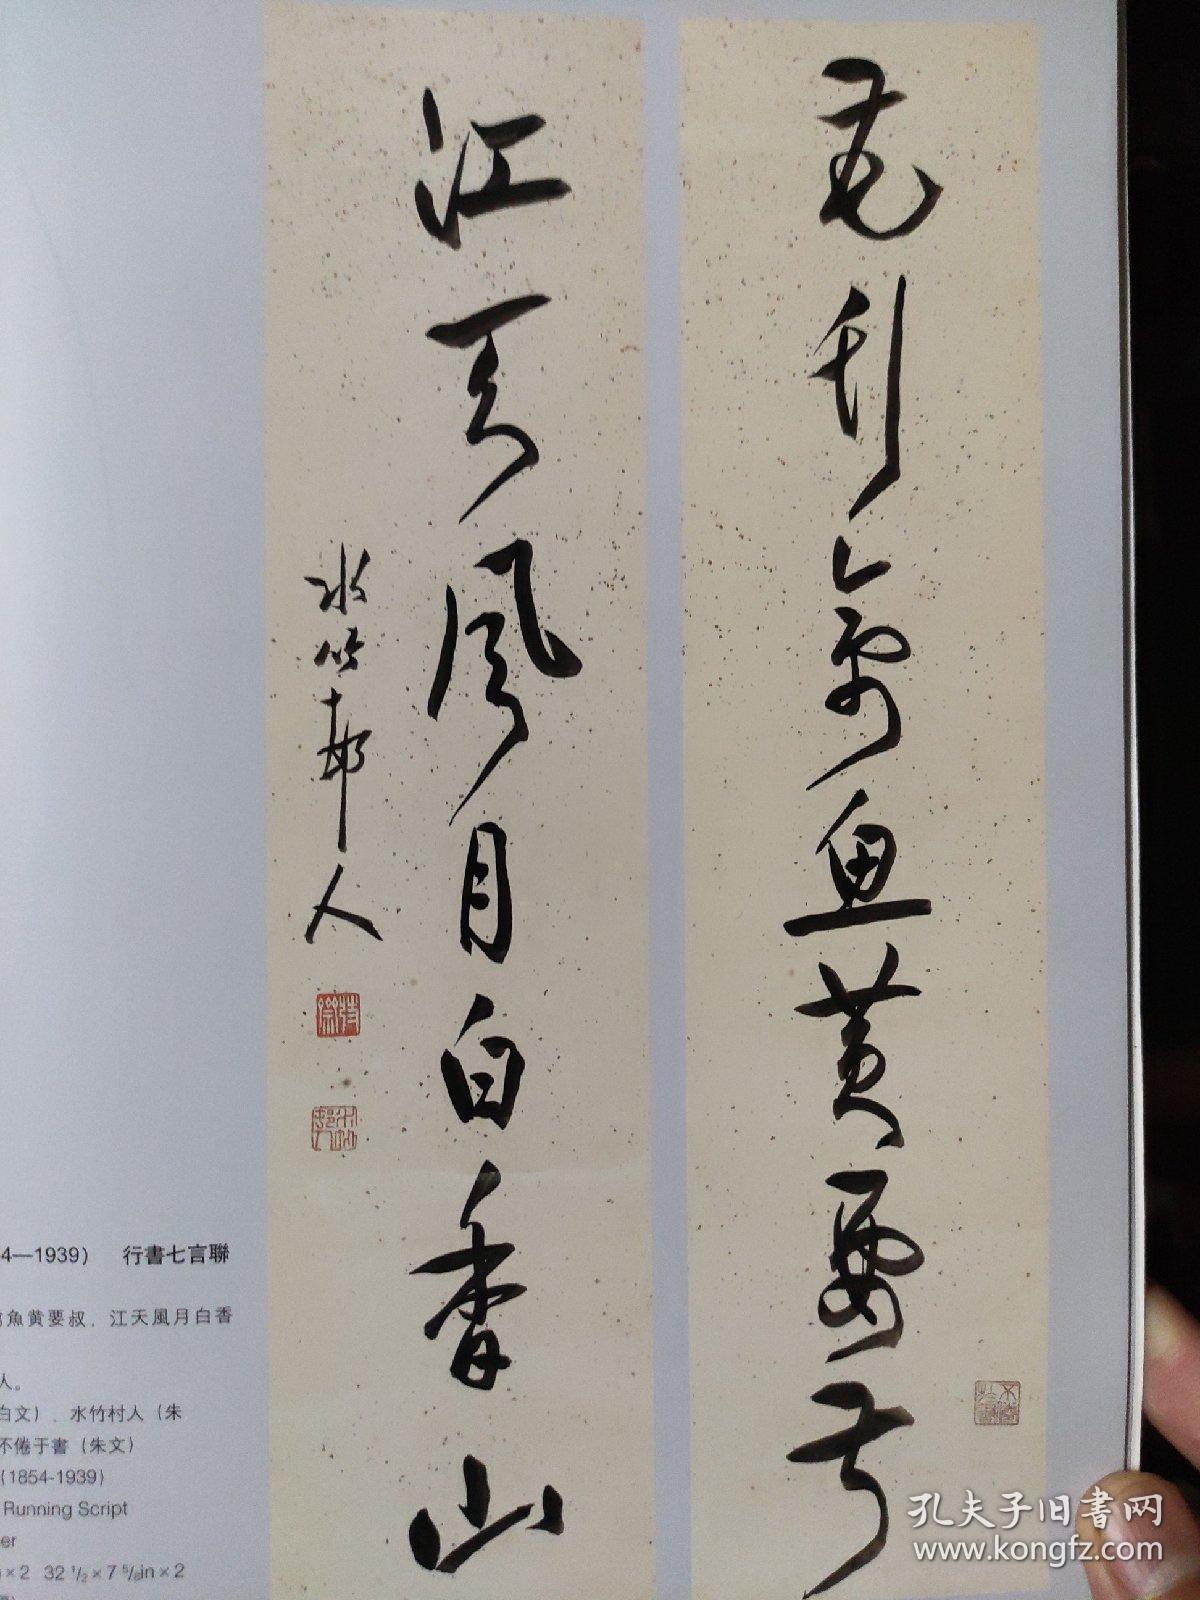 花竹禽魚黄要叔
江天風月白香山
水竹邨人
水竹邨人
4—1939） 行書七言聯
禽魚黄要叔，江天風月白香
人。
白文）、水竹村人（朱
不倦于書（朱文）
(1854-1939)
Running Script
er
×2 32 1/2×7 5/8in×2
孔夫子旧書网
www.kongfz.com